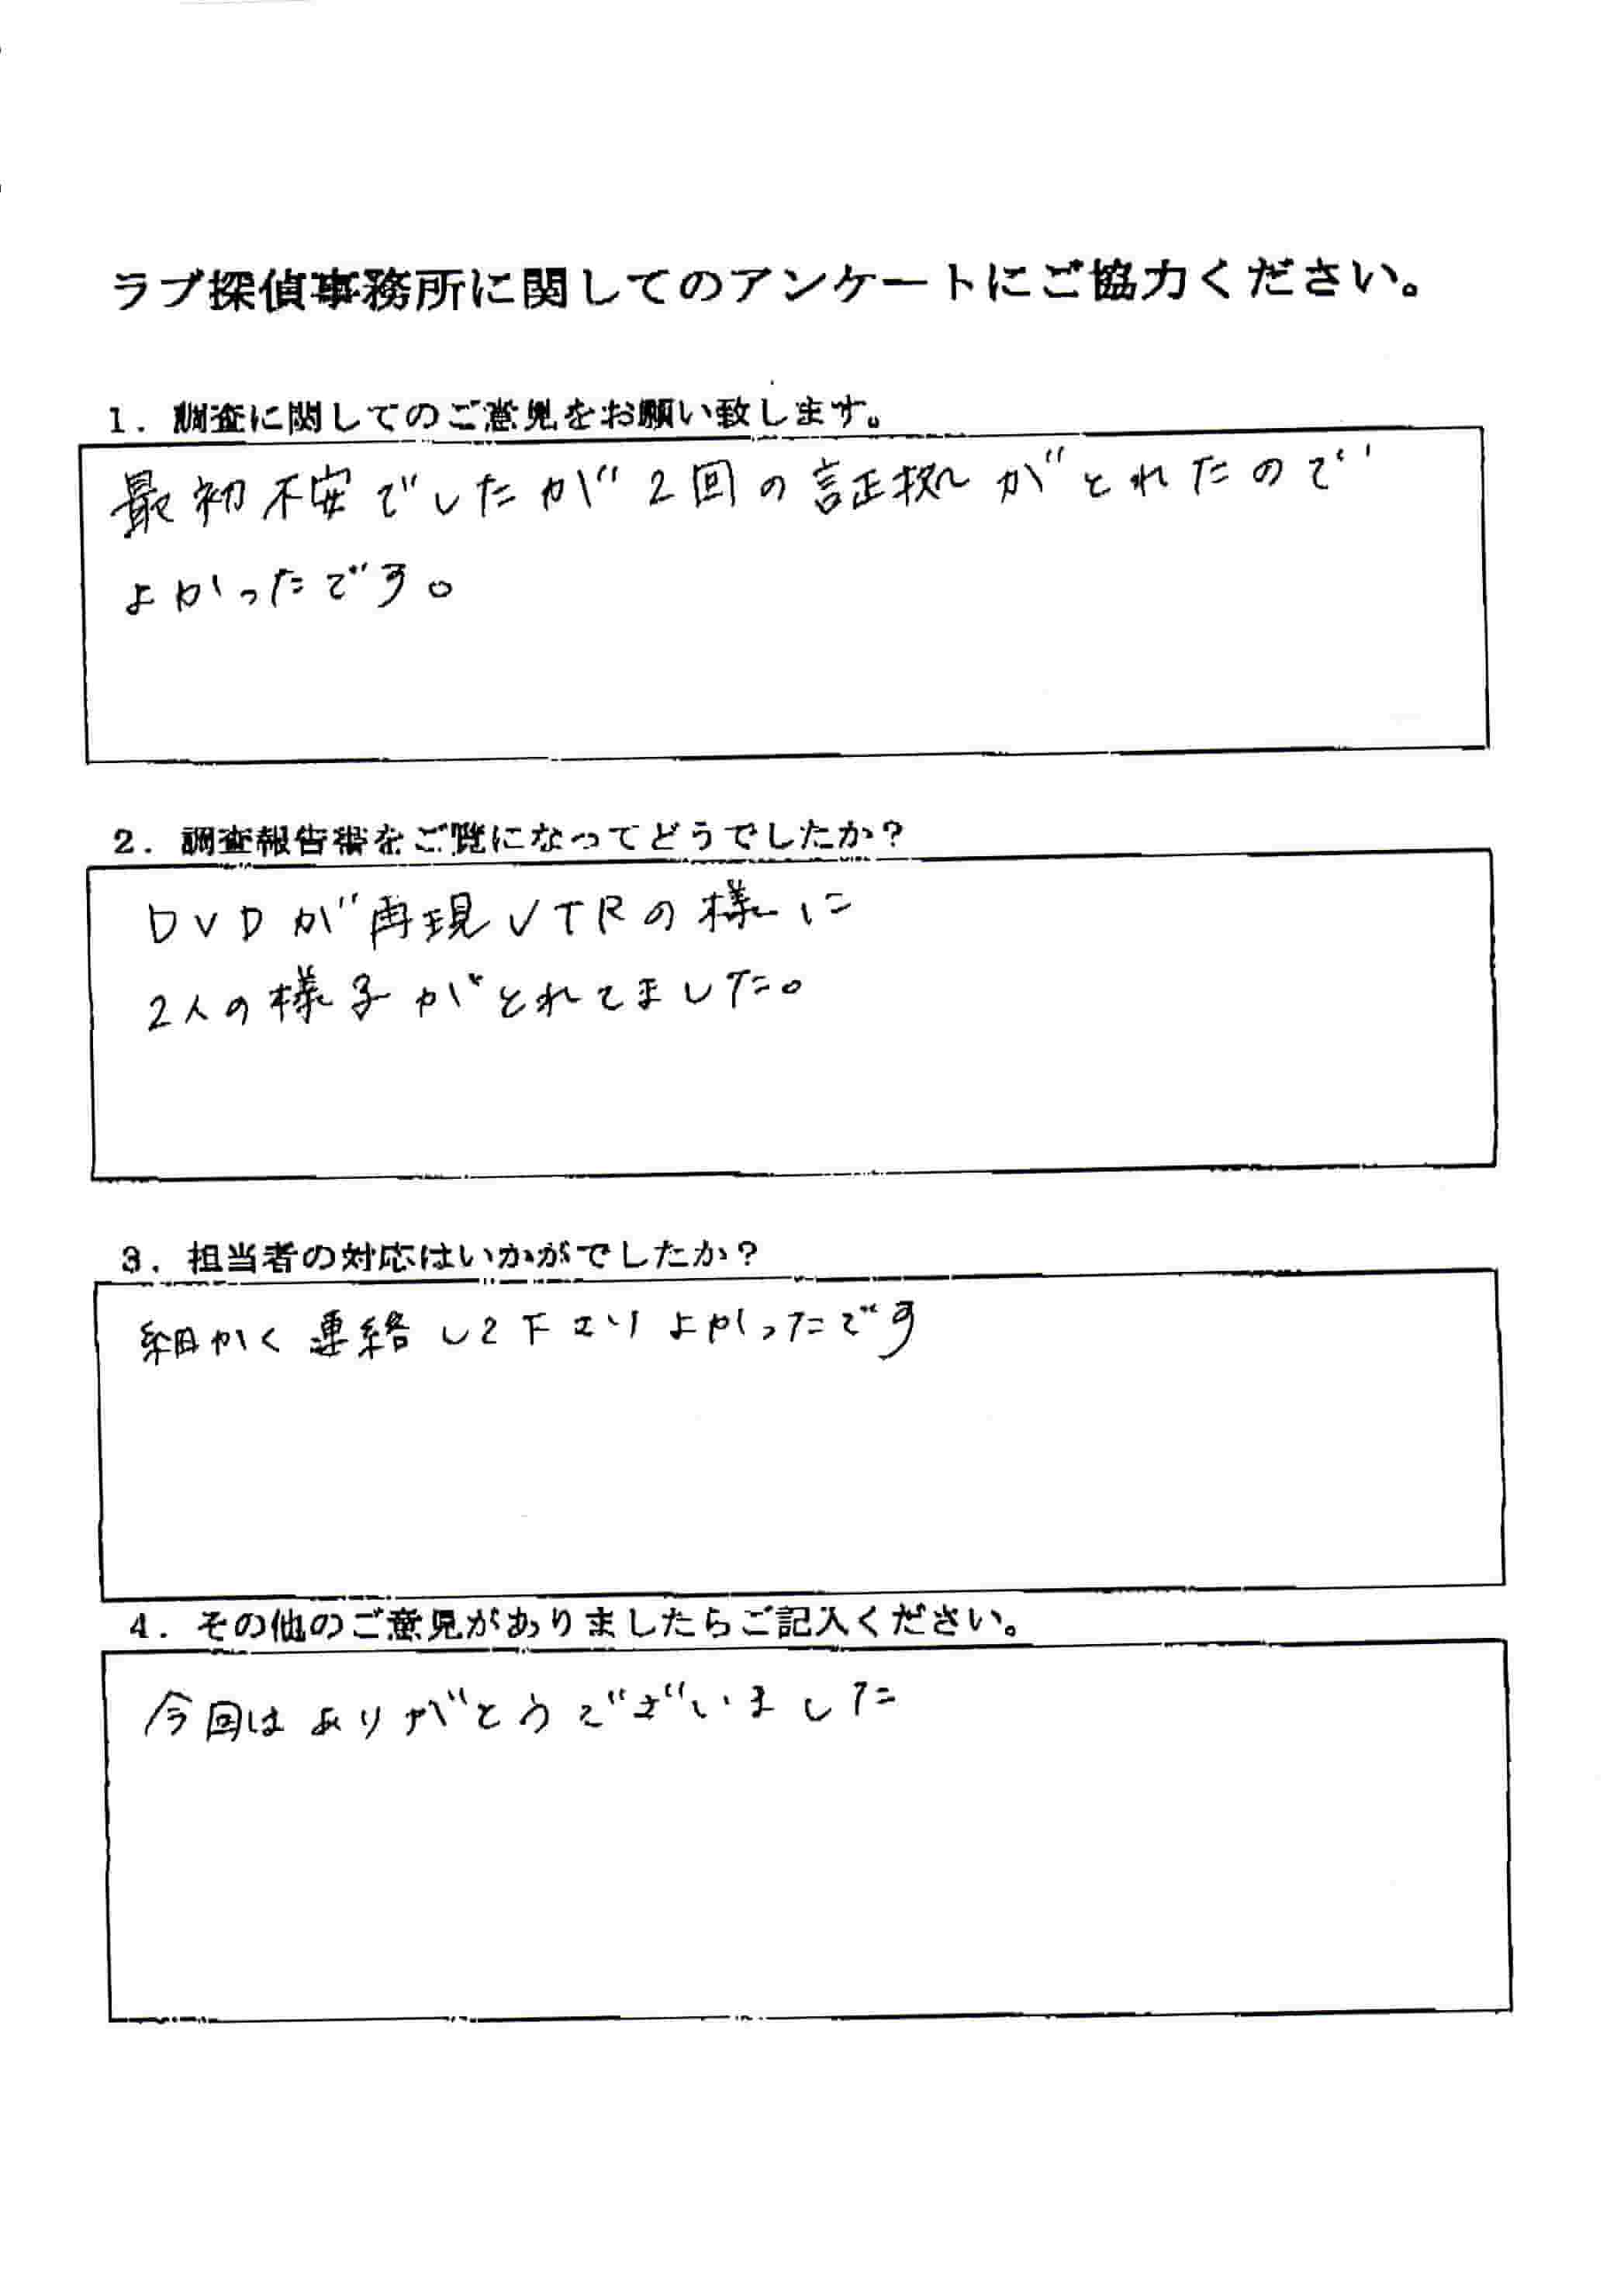 ラブ探偵事務所に関してのアンケートにご協力ください。
1. 調査に関してのご意見をお願い致します。
最初不安でしたが2回の証拠がとれたので
よかったです。
2. 調査報告書をご覧になってどうでしたか?
DVDが再現VTRの様に
2人の様子がとれてました。
3. 担当者の対応はいかがでしたか?
細かく連絡して下さりよかったです
4. その他のご意見がありましたらご記入ください。
今回はありがとうございました